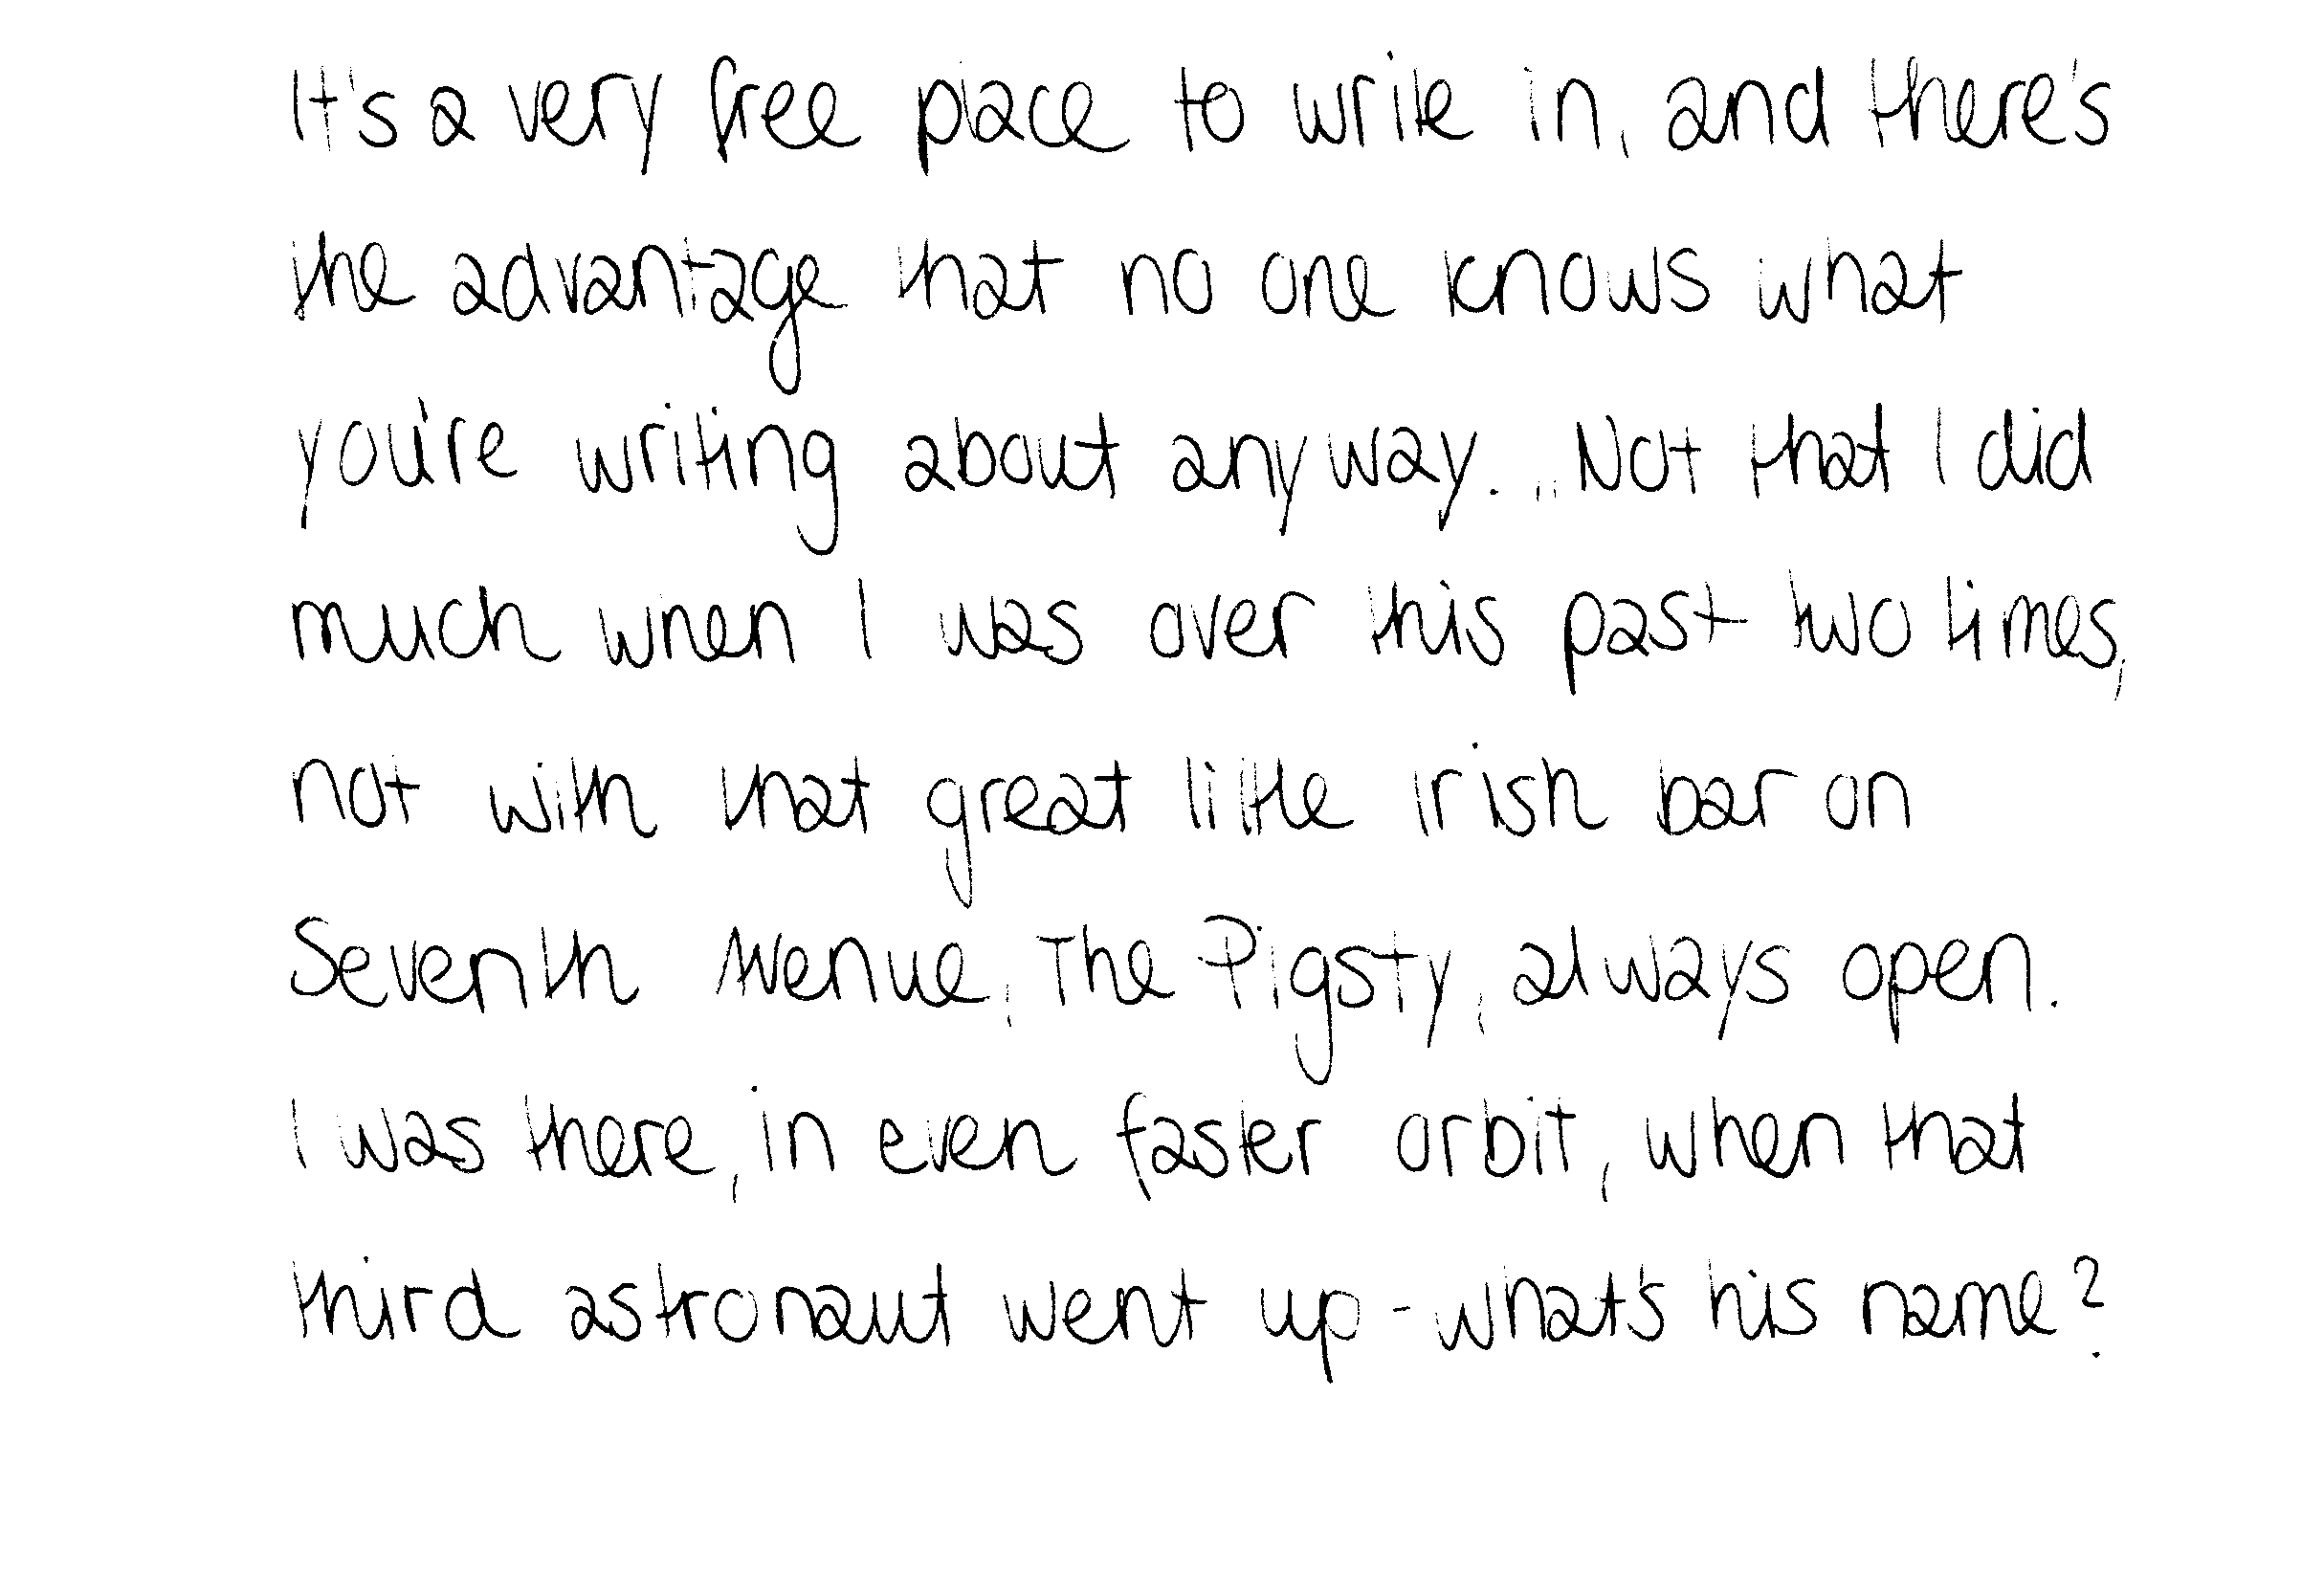 It's a very free place to write in, and there's
the advantage that no one knows what
you're writing about anyway... Not that I did
much when I was over this past two times,
not with that great little Irish bar on
Seventh Avenue, The Pigsty, always open.
I was there, in even faster orbit, when that
third astronaut went up - what's his name?